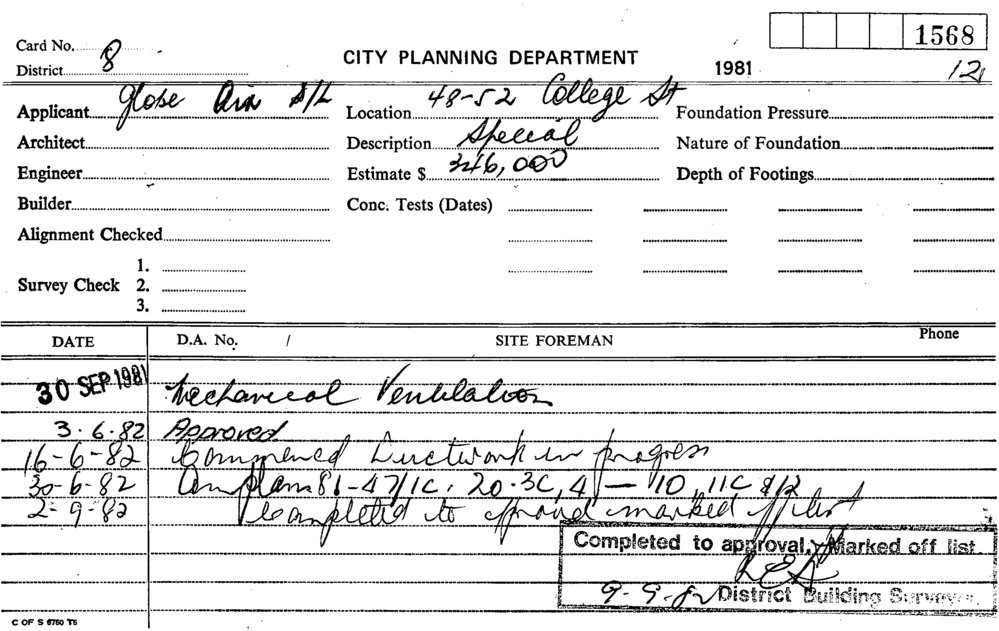 1568
Card No.
8
CITY PLANNING DEPARTMENT
District
1981
12
Applicant Globe Air P/L
Location 48-52 College St
Foundation Pressure
Architect
Description Special
Nature of Foundation
Engineer
Estimate $ 346,000
Depth of Footings
Builder
Conc. Tests (Dates)
Alignment Checked
1.
Survey Check 2.
3.
DATE D.A. No. / SITE FOREMAN Phone
30 SEP 1981 Mechanical Ventilation
3.6.82 Approved
16-6-82 Commenced Ductwork in progress
30-6-82 plans 81-47/1C. 20.3C, 4 — 10, 11C
2-9-82 Completed to marked off list
Completed to approval. Marked off list.
9-9-82 District Building Surveyor.
C OF S 6760 T6